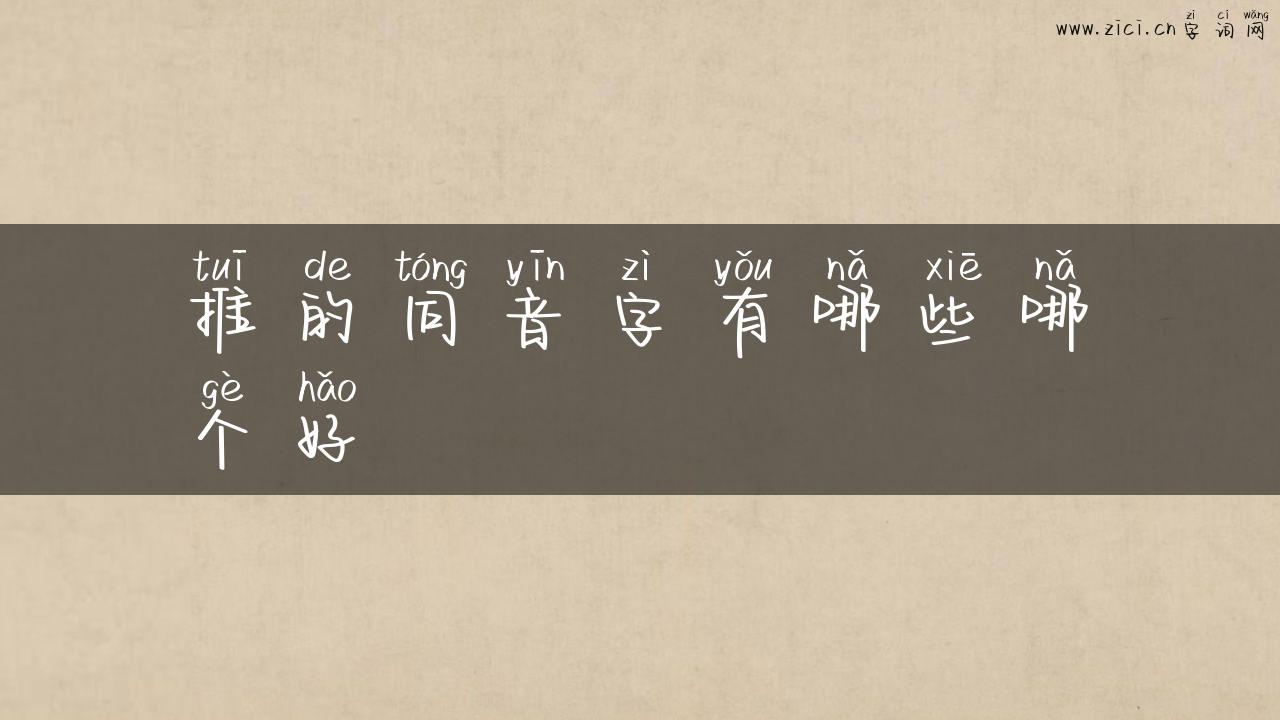 zì cí wǎng
www.zici.cn 字词网
tuī de tóng yīn zì yǒu nǎ xiē nǎ
推的同音字有哪些哪
gè hǎo
个好